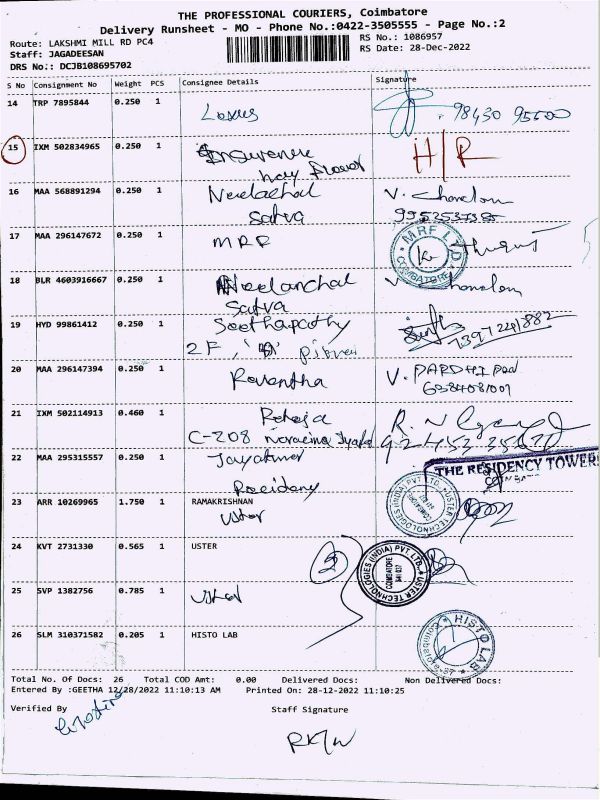 THE PROFESSIONAL COURIERS, Coimbatore
Delivery Runsheet - MO - Phone No.:0422-3505555 - Page No.:2
Route: LAKSHMI MILL RD PC4 RS No.: 1086957
Staff: JAGADEESAN RS Date: 28-Dec-2022
DRS No.: DCJB108695702
S No Consignment No Weight PCS Consignee Details Signature
14 TRP 7895844 0.250 1
98430 95600
15 IXM 502834965 0.250 1 H/R
16 MAA 568891294 0.250 1 Neelachal V.
Satva
17 MAA 296147672 0.250 1 MRF
MRF LTD
COIMBATORE
18 BLR 4603916667 0.250 1 Neelanchal V
Satva
19 HYD 99861412 0.250 1 Seethapathy
2F,
7397241882
20 MAA 296147394 0.250 1 V. PARDHI
21 IXM 502114913 0.460 1 Raheja
C-208
22 MAA 295315557 0.250 1
THE RESIDENCY TOWERS
23 ARR 10269965 1.750 1 RAMAKRISHNAN
Uster
USTER TECHNOLOGIES (INDIA) PVT. LTD.
24 KVT 2731330 0.565 1 USTER 2
USTER TECHNOLOGIES (INDIA) PVT. LTD.
COIMBATORE
641 037
25 SVP 1382756 0.785 1 Uster
26 SLM 310371582 0.205 1 HISTO LAB
HISTO LAB
Coimbatore-37
Total No. Of Docs: 26 Total COD Amt: 0.00 Delivered Docs: Non Delivered Docs:
Entered By :GEETHA 12/28/2022 11:10:13 AM Printed On: 28-12-2022 11:10:25
Verified By Staff Signature